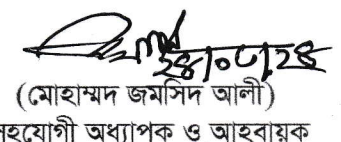 ২৪/০৮/২৪
(মোহাম্মদ জমসিদ আলী)
সহযোগী অধ্যাপক ও আহবায়ক